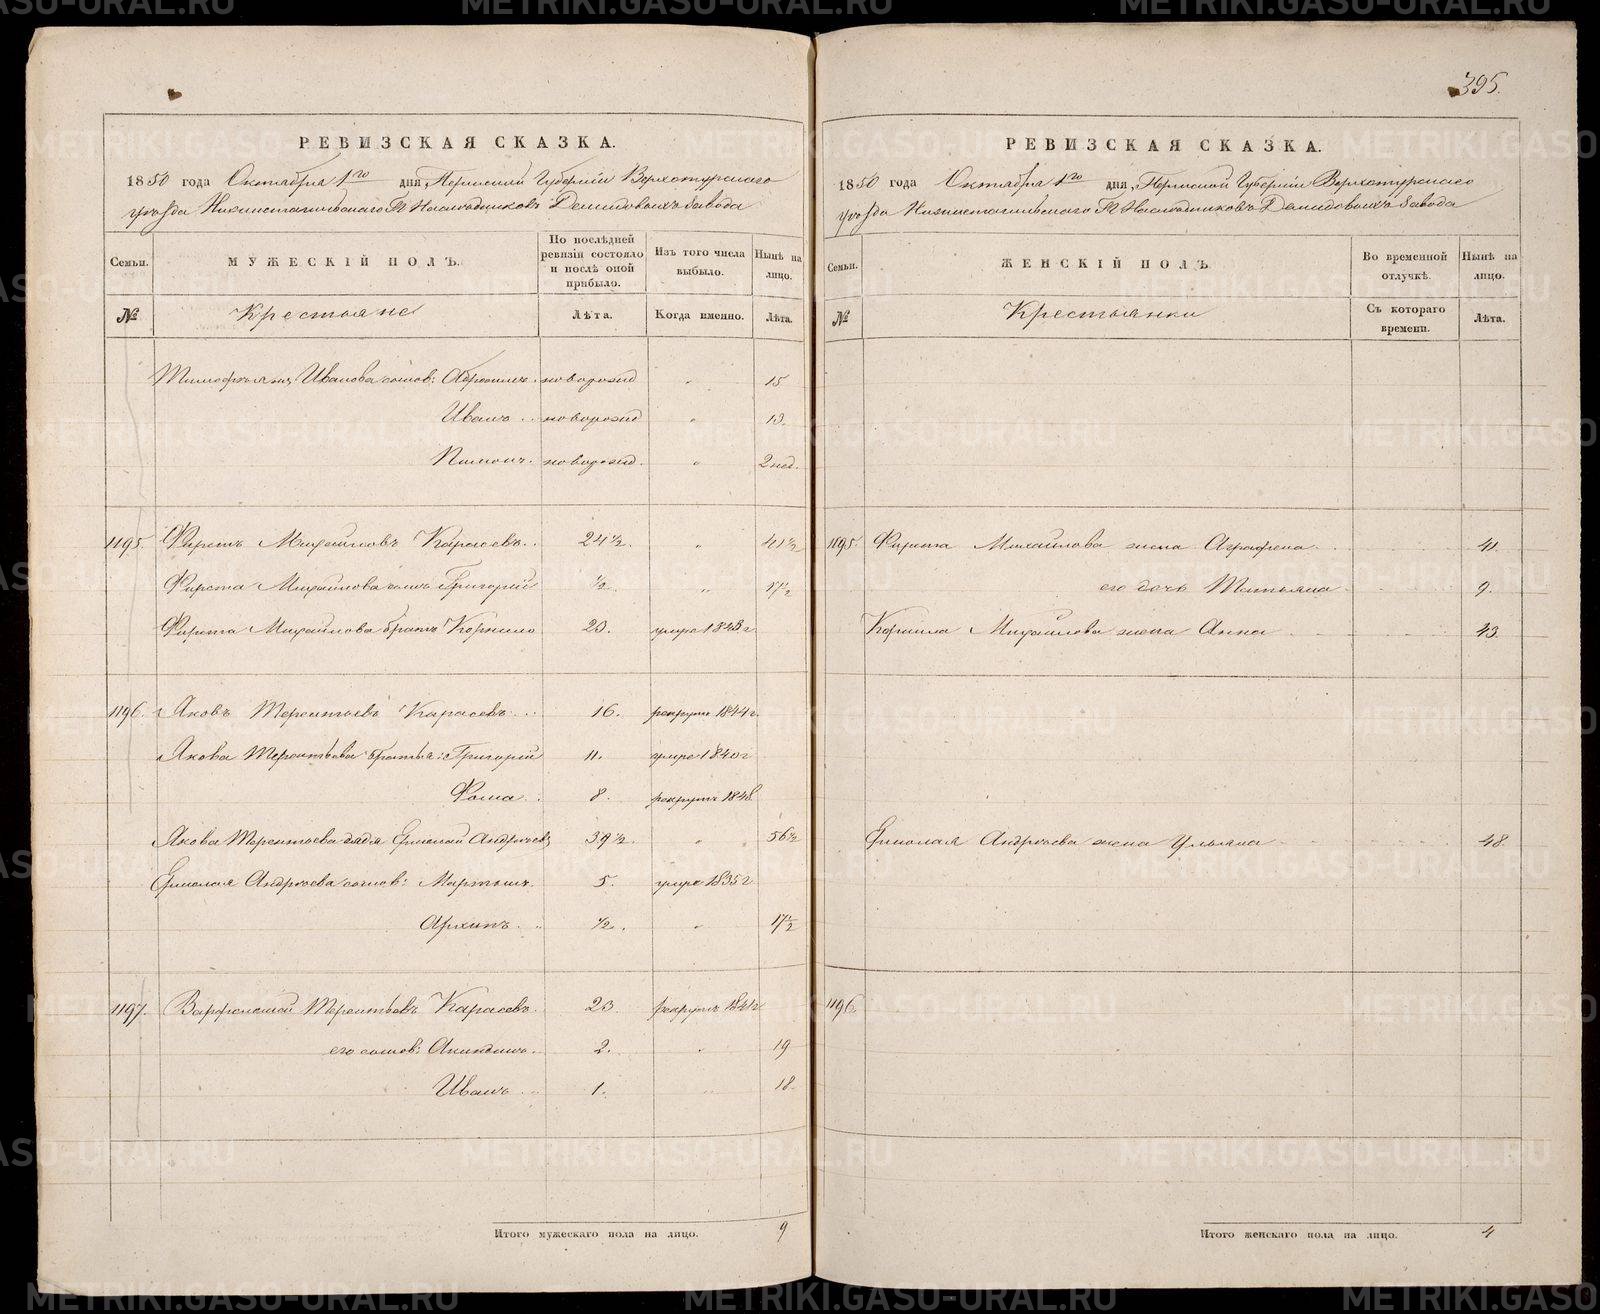 395.
РЕВИЗСКАЯ СКАЗКА.
1850 года Октября 1го дня, Пермской Губернии Верхотурскаго
уѣзда Нижнетагильскаго Гг. Наслѣдниковъ Демидовыхъ Завода
Семьи. МУЖЕСКІЙ ПОЛЪ. По послѣдней ревизіи состояло и послѣ оной прибыло. Изъ того числа выбыло. Нынѣ на лицо.
№ Крестьяне Лѣта. Когда именно. Лѣта.
Иванова сынов: новорожд „ 15
Иванъ новорожд „ 13.
новорожд. „ 2 нед.
1195. Фирстъ Михайловъ Карасевъ. 24½. „ 41½
Фирста Михайлова сынъ Григорій ½. „ 17½
Фирста Михайлова братъ Корнило 23. умре 1848 г
1196. Яковъ Терентьевъ Карасевъ. 16. рекрутъ 1844 г.
Якова Терентьева братья: Григорій 11. умре 1840 г
Фома 8. рекрутъ 1848
Якова Терентьева дядя Ермолай Андреевъ 39½. „ 56½
Ермолая Андреева сынов: Мартынъ. 5. умре 1835 г
Архипъ. ½. „ 17½
1197. Варфоломей Терентьевъ Карасевъ. 23. рекрутъ 1841 г
его сынов: 2. „ 19
Иванъ 1. „ 18.
Итого мужескаго пола на лицо. 9
РЕВИЗСКАЯ СКАЗКА.
1850 года Октября 1го дня, Пермской Губерніи Верхотурскаго
уѣзда Нижнетагильскаго Гг. Наслѣдниковъ Демидовыхъ Завода
Семьи. ЖЕНСКІЙ ПОЛЪ Во временной отлучкѣ. Нынѣ на лицо.
№ Крестьянки Съ котораго времени. Лѣта.
1195. Фирста Михайлова жена Аграфена 41.
его дочь Татьяна 9.
Корнила Михайлова жена Анна 43.
Ермолая Андреева жена Ульяна 48.
1196.
Итого женскаго пола на лицо. 4
METRIKI.GASO-URAL.RU